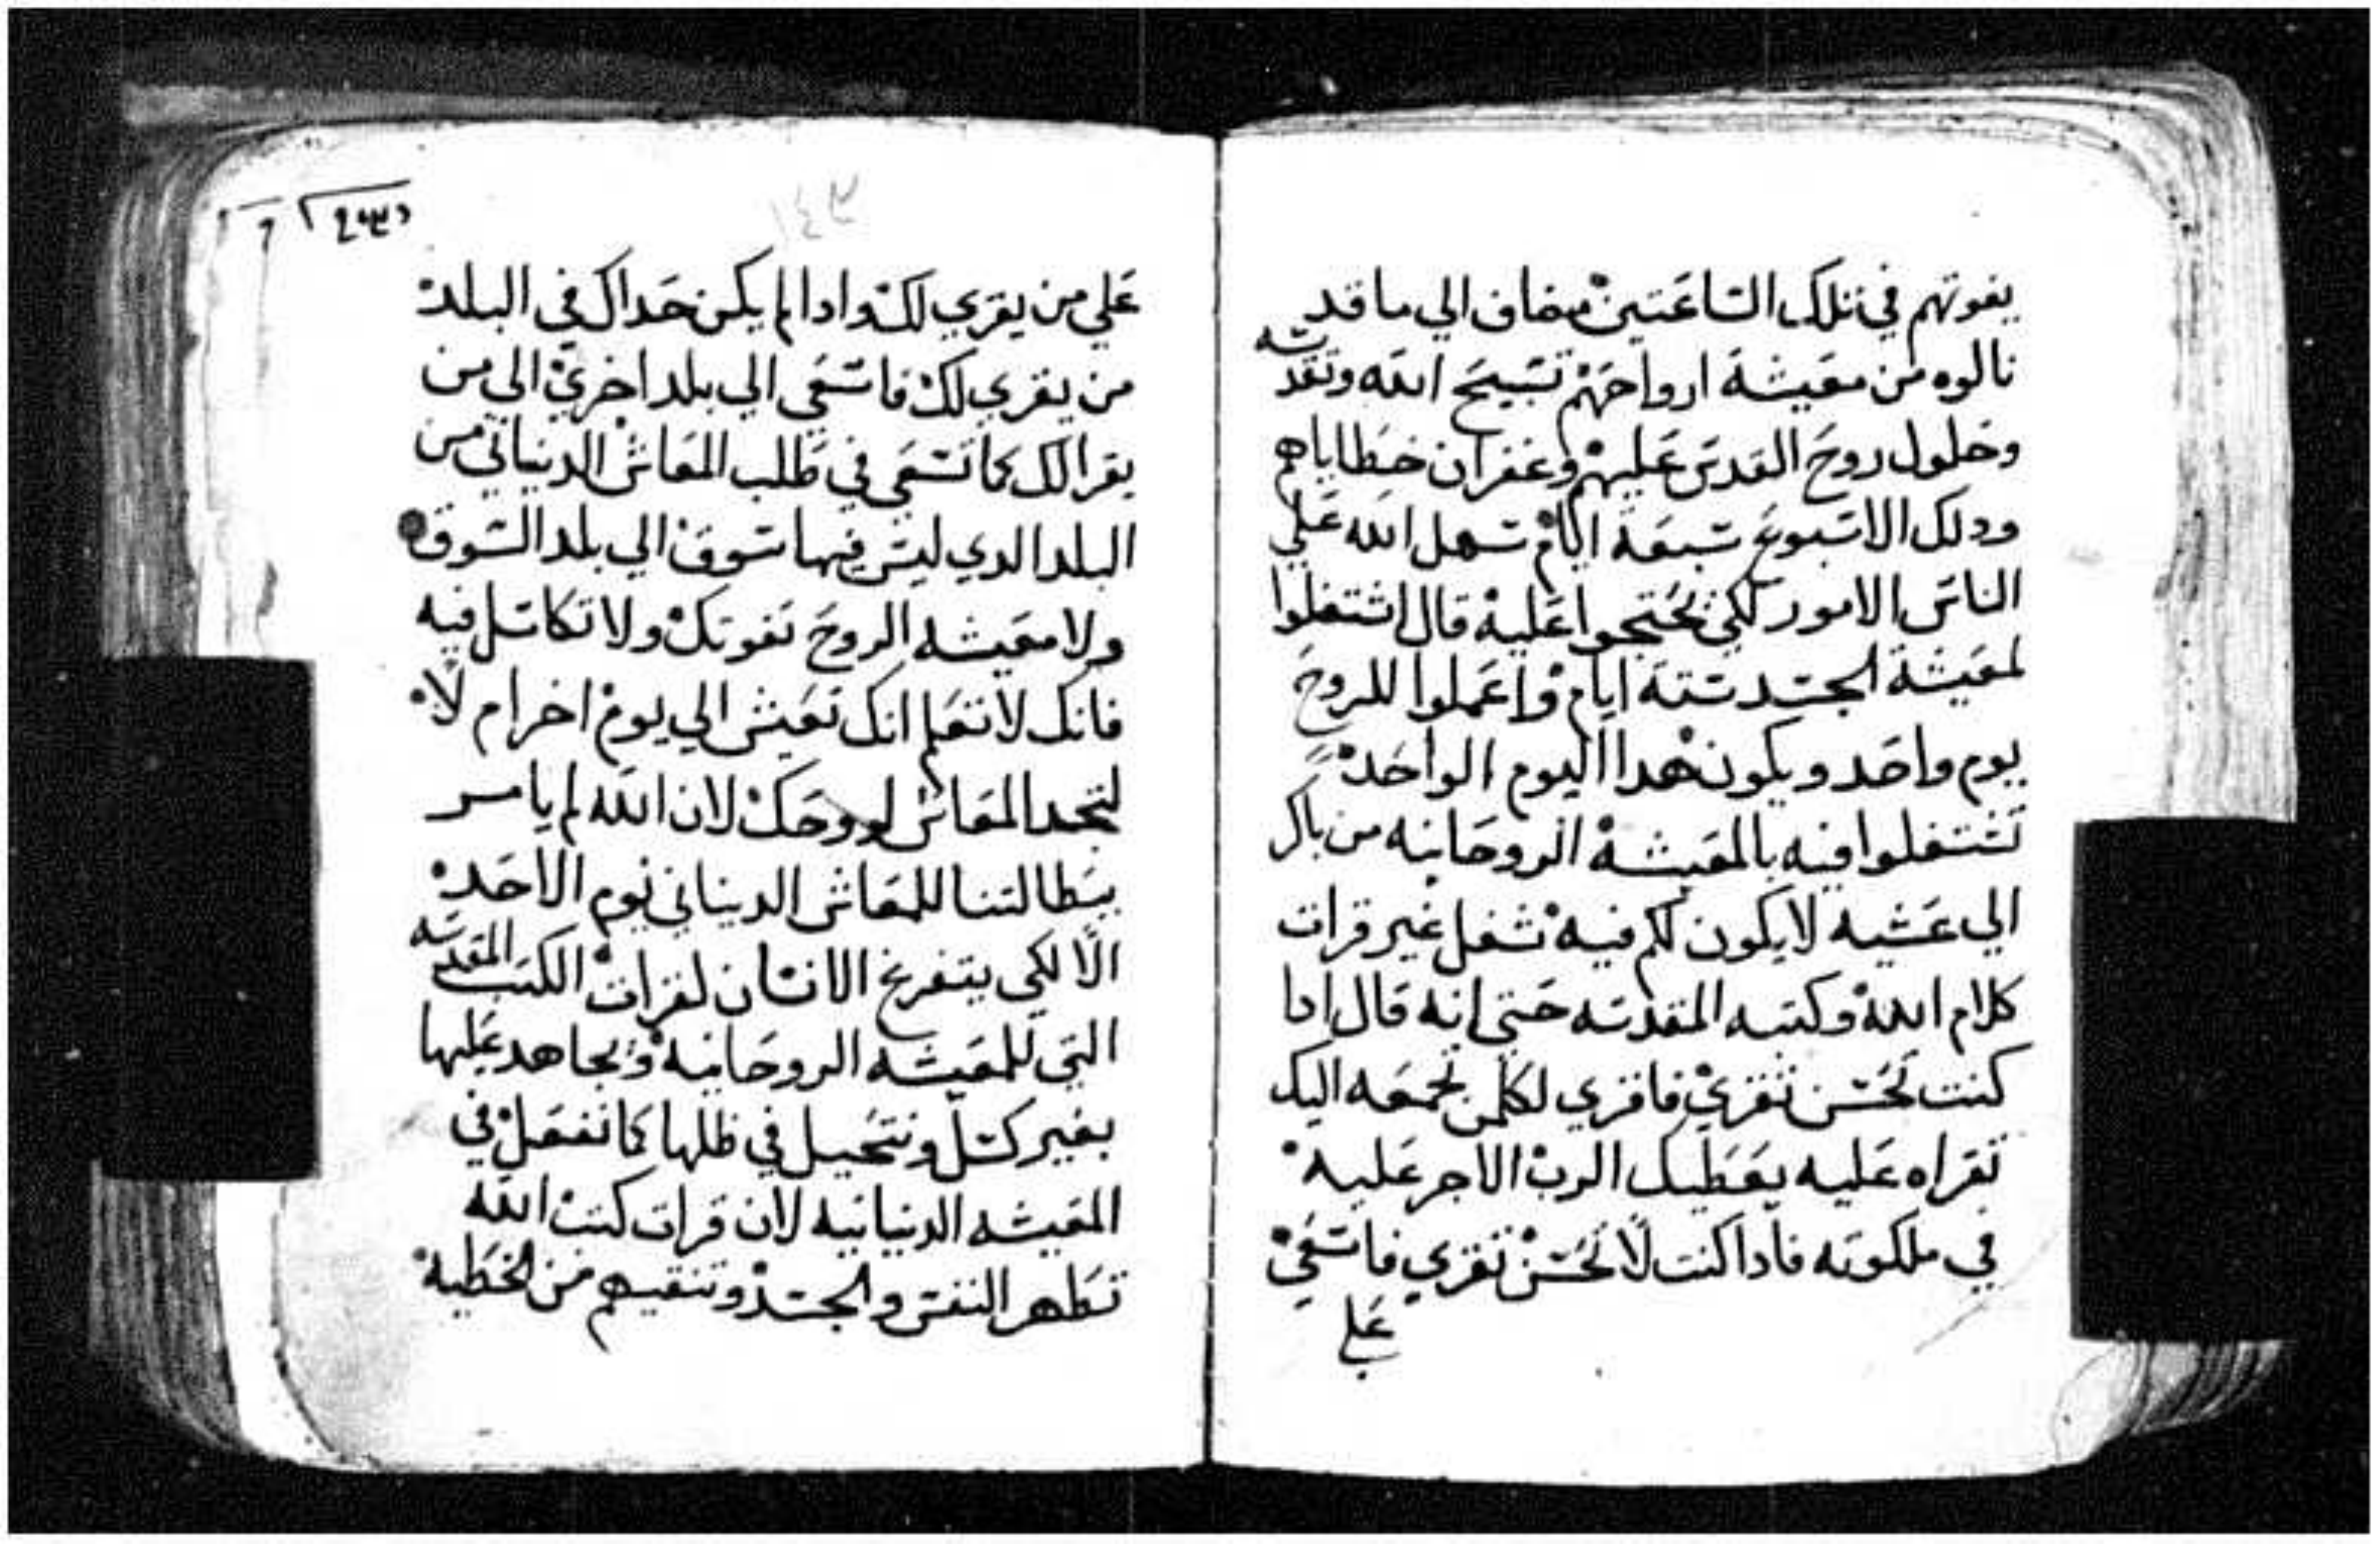 يفوتهم في تلك الساعتين مضاف الي ما قد
نالوه من معيشة ارواحهم تسبيح الله وتقدسه
وحلول روح القدس عليهم وغفران خطاياهم
ودلك الاسبوع سبعة ايام سهل الله علي
الناس الامور لكي يحتجوا عليه قال اشتغلوا
لمعيشة الجسد ستة ايام واعملوا للروح
يوم واحد ويكون هدا اليوم الواحد
تشتغلوا فيه بالمعيشة الروحانيه من باكر
الي عشيه لا يكون لكم فيه شغل غير قرات
كلام الله وكتبه المقدسه حتي انه قال ادا
كنت تحسن تقري فاقري لكلمن تجمعه اليك
تقراه عليه يعطيك الرب الاجر عليه
في ملكوته فادا كنت لا تحسن تقري فاسعي
علي
علي من يقري لك وادا لم يكن حداك في البلد
من يقري لك فاسعي الي بلد اخري الي من
يقرا لك كما تسعي في طلب المعاش الدنياني من
البلد الدي ليس فيها سوق الي بلد السوق
ولا معيشه الروح تفوتك ولا تكاسل فيه
فانك لا تعلم انك تعيش الي يوم اخر ام لا
لتجد المعاش لروحك لان الله لم يامر
ببطالتنا للمعاش الدنياني يوم الاحد
الا لكي يتفرغ الانسان لقرات الكتب المقدسه
التي للمعيشه الروحانيه ونجاهد عليها
بغير كسل ونتحيل في طلبها كما نفعل في
المعيشه الدنيانيه لان قرات كتب الله
تطهر النفس والجسد وتنقيهم من الخطيه